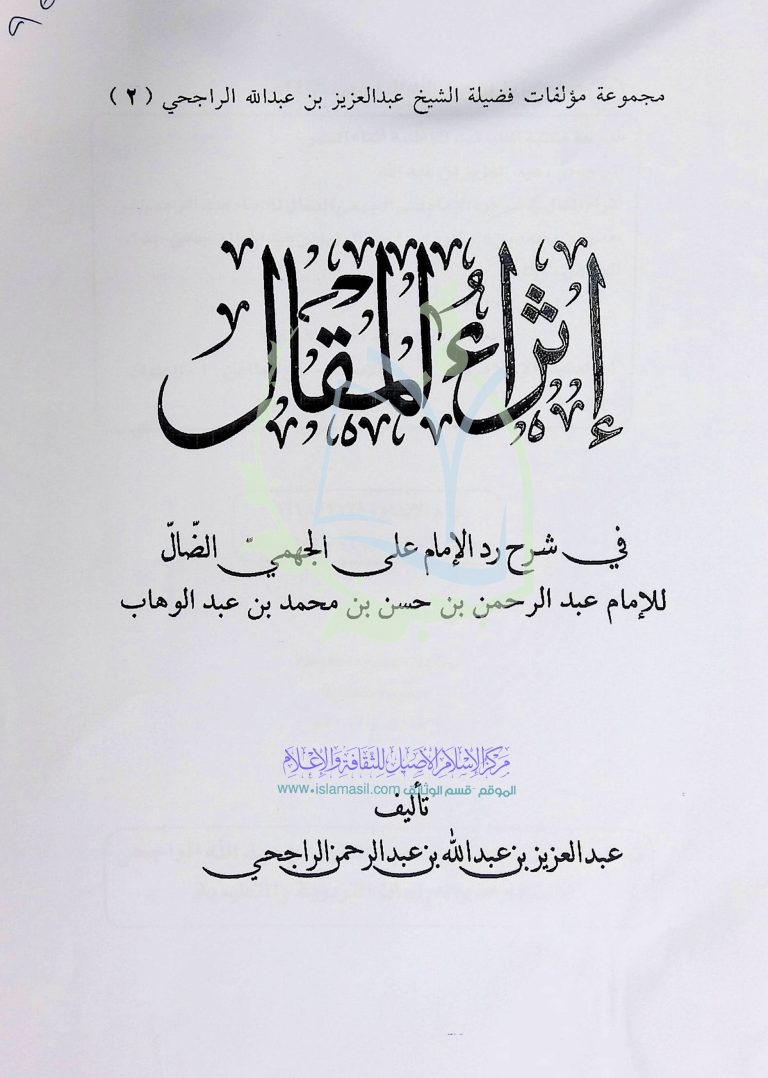 مجموعة مؤلفات فضيلة الشيخ عبدالعزيز بن عبدالله الراجحي ( ٢ )
إثراء المقال
في شرح رد الإمام على الجهميّ الضّالّ
للإمام عبد الرحمن بن حسن بن محمد بن عبد الوهاب
مركز الإسلام الأصيل للثقافة والإعلام
الموقع - قسم الوثائق www.islamasil.com
تأليف
عبدالعزيز بن عبدالله بن عبدالرحمن الراجحي